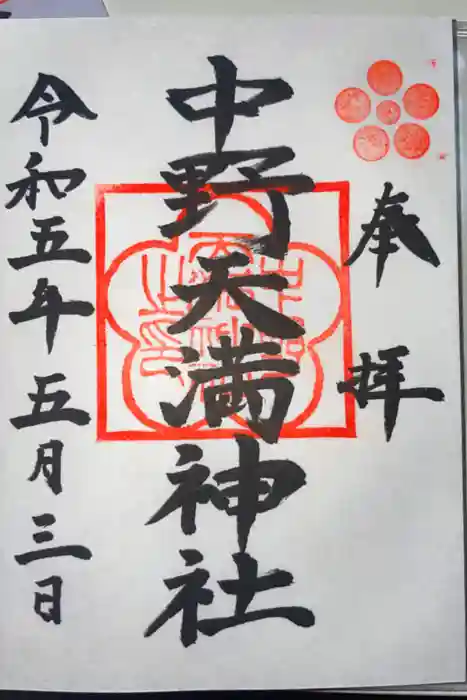 奉拝
中野天満神社
令和五年五月三日